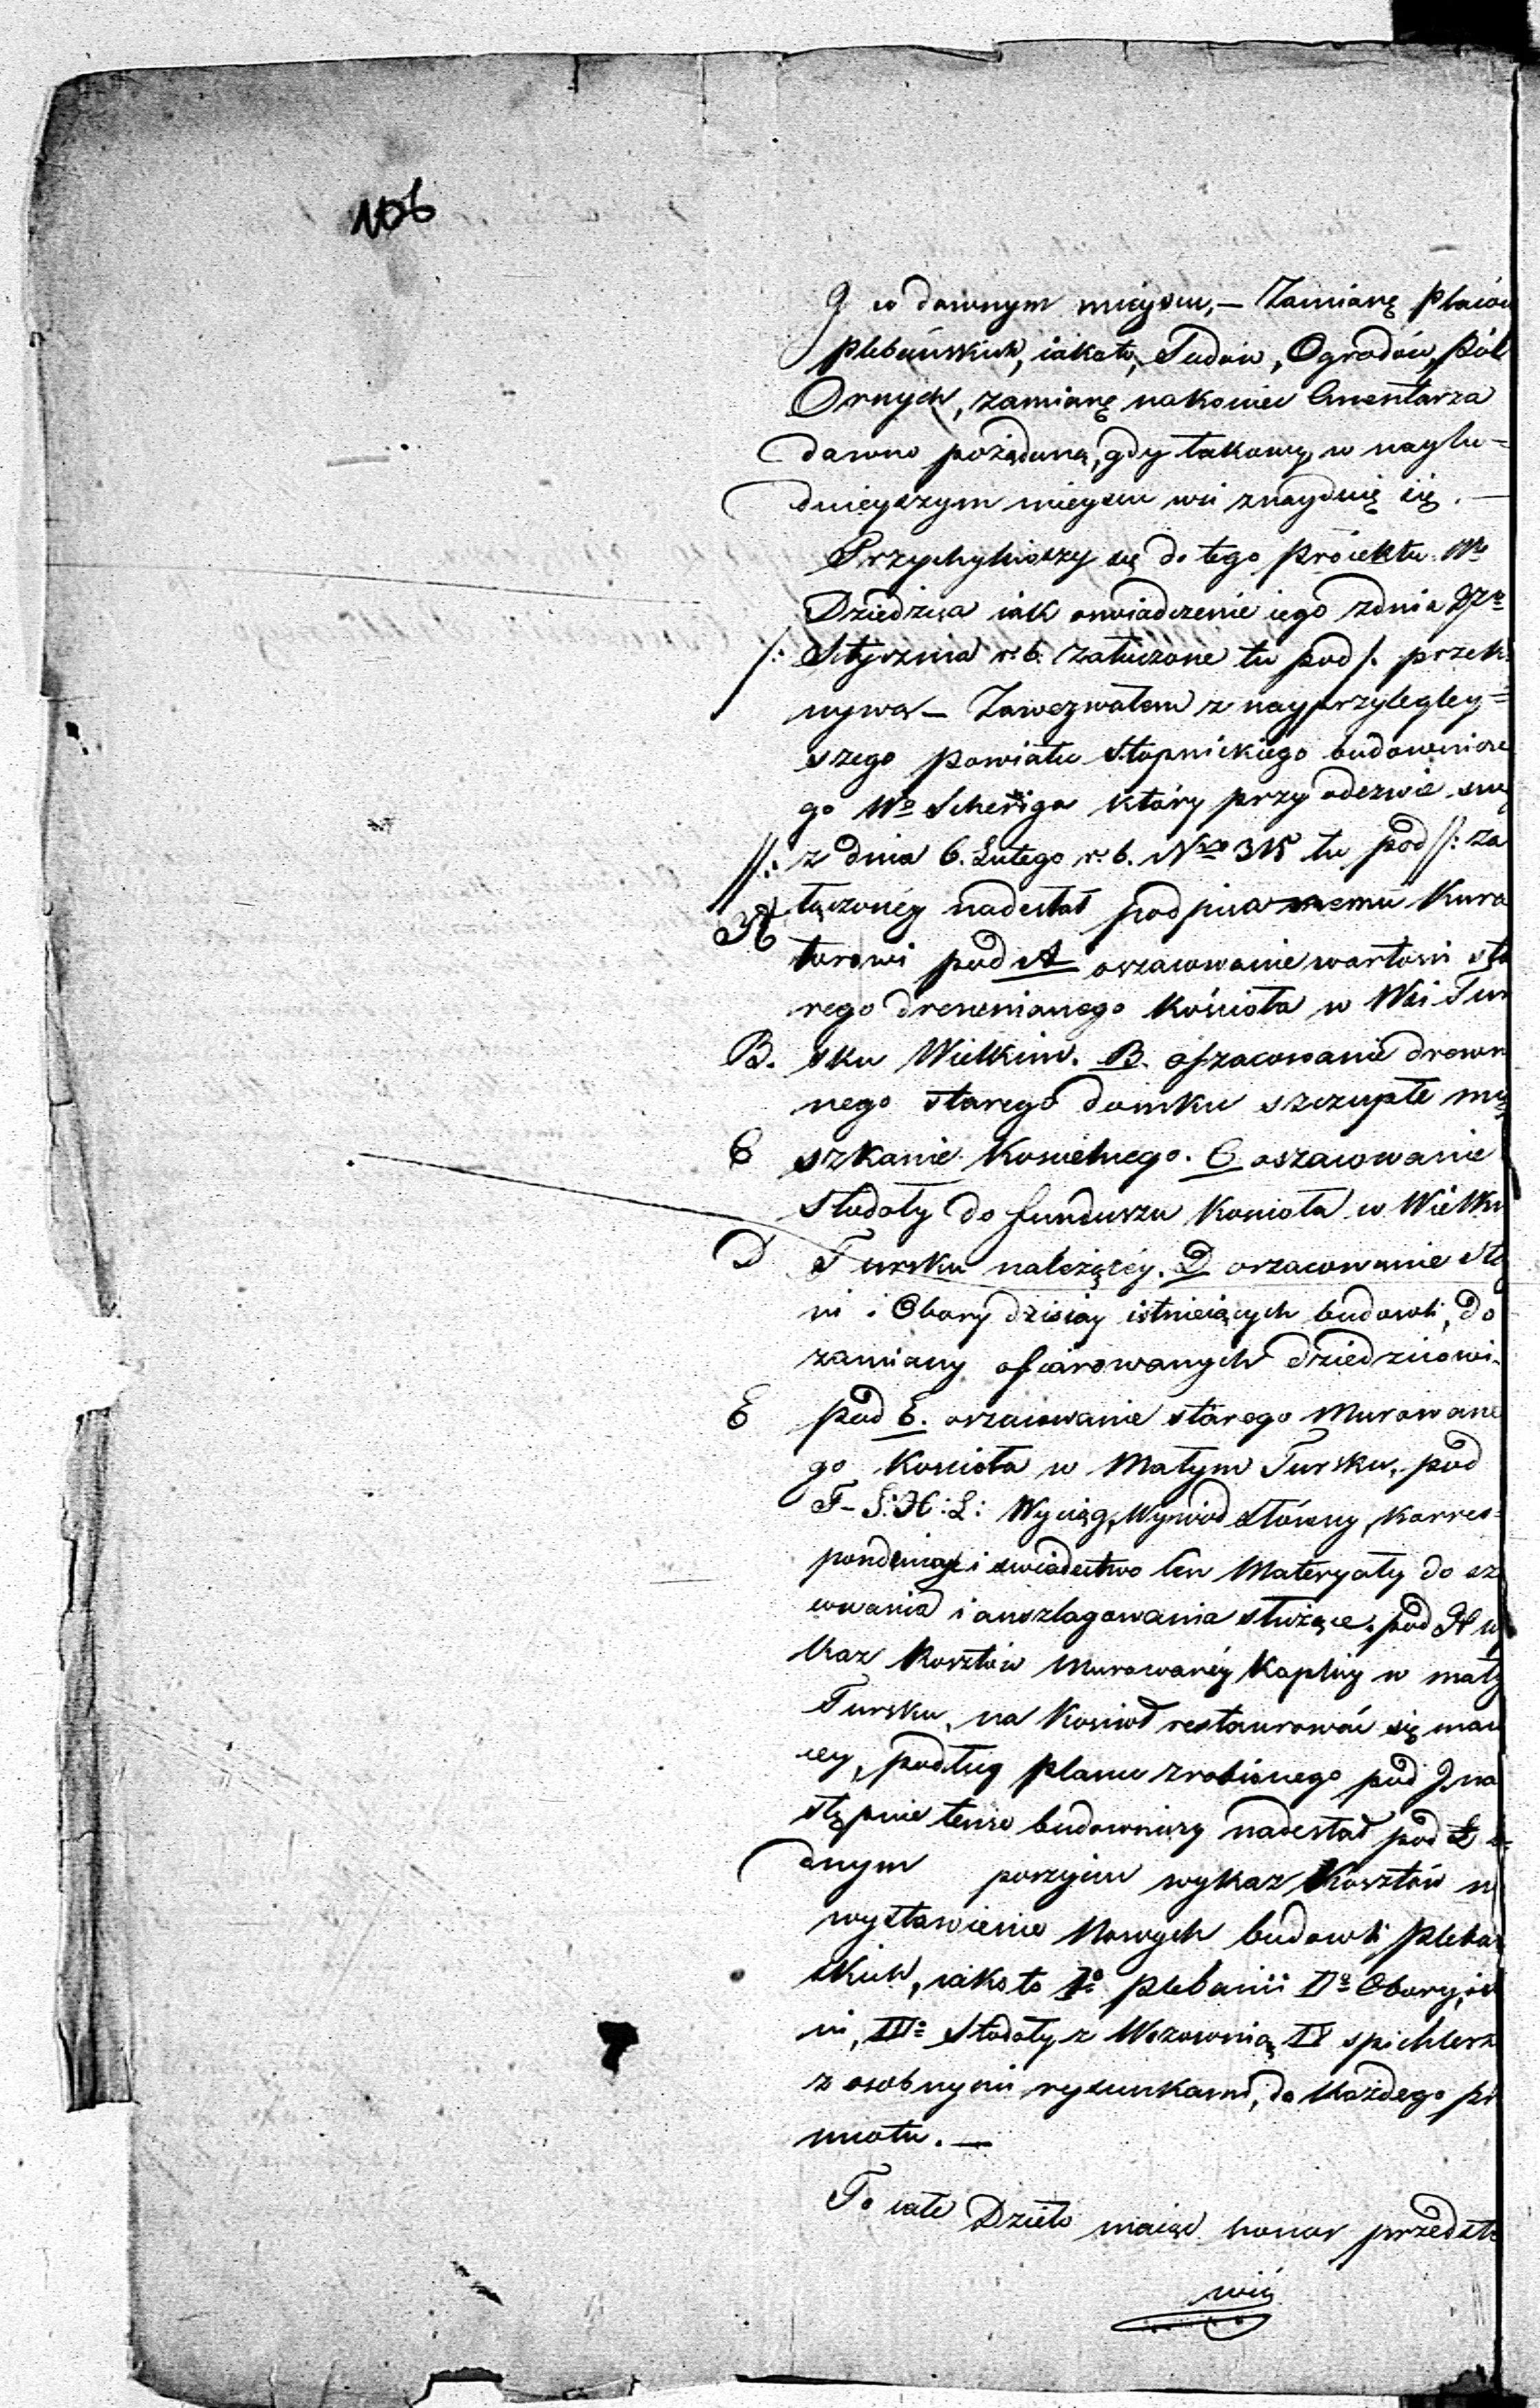 106
J w dawnym mieyscu, — Zamianę placów
plebańskich, iakoto, Sadów, Ogrodów, Pól
Ornych, zamianę nakoniec Cmentarza
dawno pożądaną, gdy takowy w naylu=
dnieyszym mieyscu wsi znayduię się. —
Przychyliwszy się do tego proiektu W°
Dziedzica iak oświadczenie iego z dnia
/: Stycznia r. b. załączone tu pod /. przek
nywa — Zawezwałem z nayprzyległey=
szego powiatu Stopnickiego budownicze
go W° Scheriga który przy odezwie swey
//: z dnia 6. Lutego r. b. Nro 315 tu pod //: za
łączoney nadesłał podpisanemu Kura
A
torowi pod A oszacowanie wartości sta
rego drewnianego Kościoła w Wsi Tur
B. sku Wielkim. B. oszacowanie drewn
nego starego domku szczupłe my
C szkanie Kościelnego. C oszacowanie
Stodoły do funduszu Kościoła w Wielkim
D Tursku należącéy. D oszacowanie Stay
ni i Obory dzisiay istnieiących budowli, do
zamiany ofiarowanych dziedzicowi.
E pod E. oszacowanie starego Murowane
go Kościoła w Małym Tursku, pod
F- G: H: L: Wyciąg, Wywód Słowny, korres=
pondencye i swiadectwo Cen Materyały do sza
cowania i anszlagowania służące. pod H wy
kaz Kosztów Murowanéy Kaplicy w mały
Tursku, na Kosciół restaurować się maią
cey, podług planu zrobionego pod J. na
stępnie tenże budowniczy nadesłał pod Ł
dnym poszyciu wykaz Kosztów n
wystawienie Nowych budowli pleba
skich, iako to I° plebanii II° Obory, st
ni, III° Stodoły z Wozownią IV spichlerz
z osobnymi rysunkami, do każdego pr
miotu. —
To całe Dzieło maiąc honor przedsta
wić